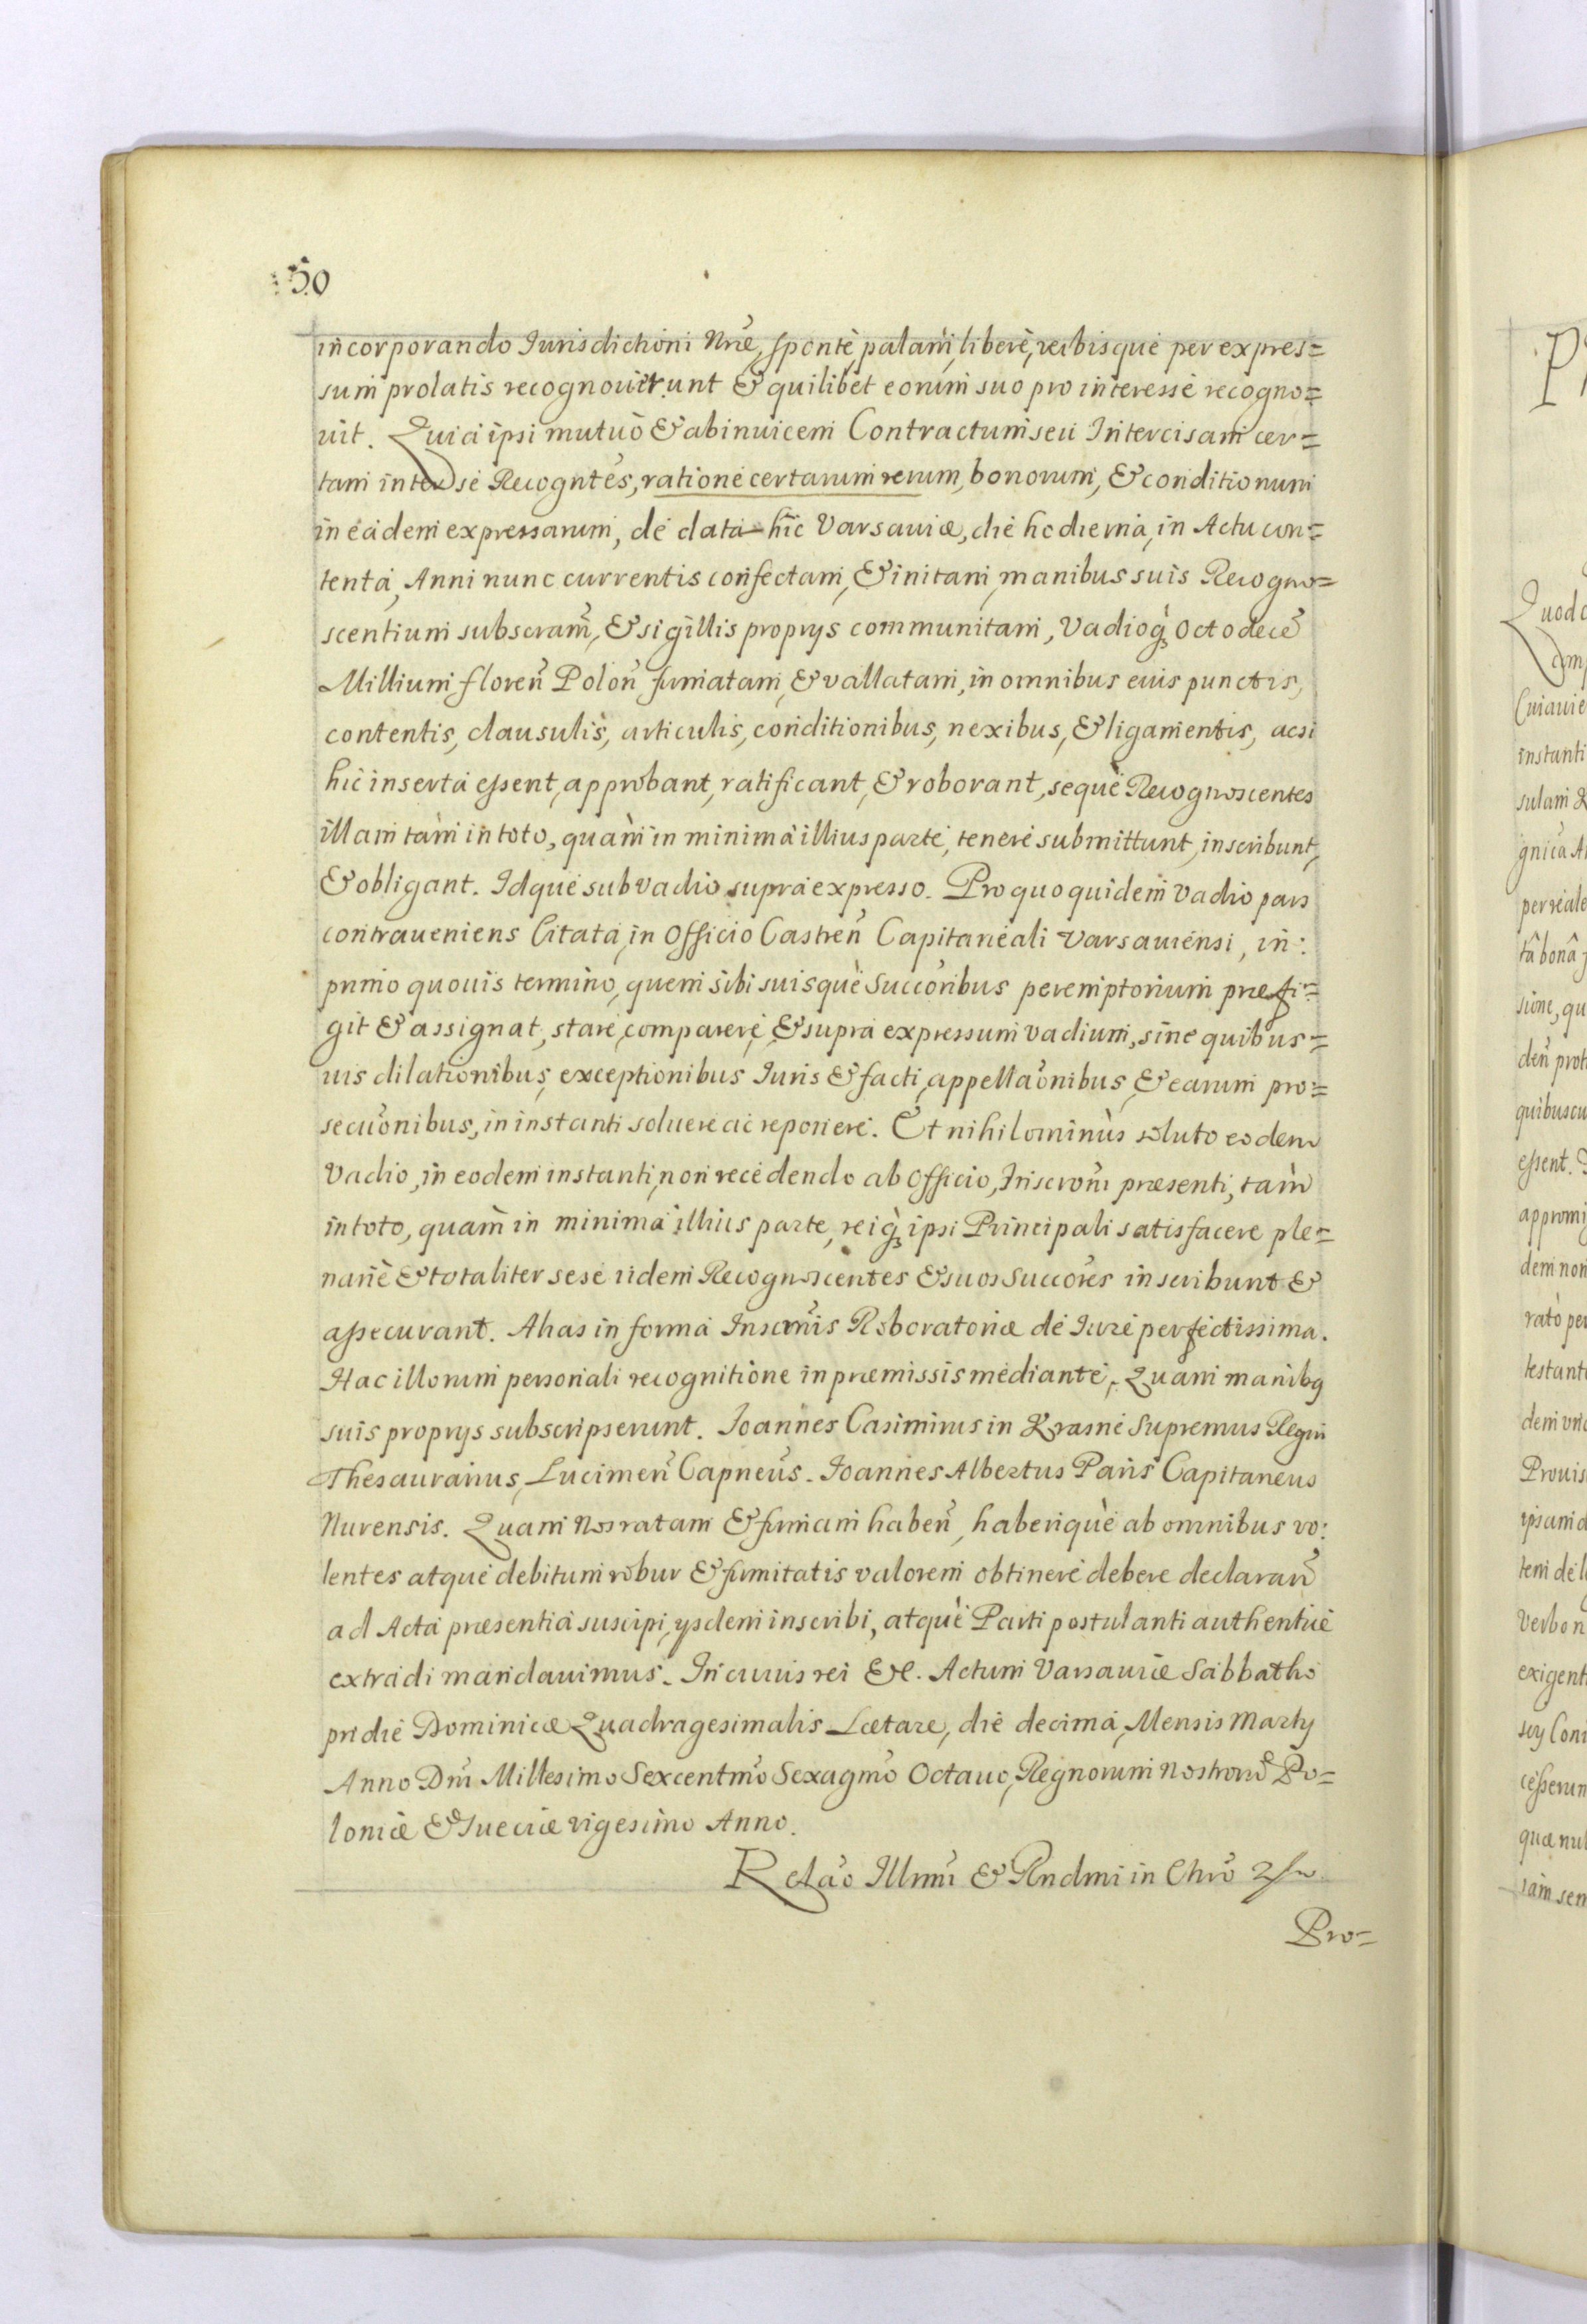 50
incorporando Jurisdictioni Nrae, sponte, palam, libere, verbisque per expres=
sum prolatis recognouerunt & quilibet eorum suo pro interesse recogno=
uit. Quia ipsi mutuò & abinuicem Contractum seu Intercisam cer=
tam inter se Recogntes, ratione certarum rerum, bonorum, & conditionum
in eadem expressarum, de data hic Varsauiæ, die hodierna, in Actu con=
tenta, Anni nunc currentis confectam, & initam, manibus suis Recogno=
scentium subscram, & sigillis proprys communitam, Vadioq́ Octodecẽ
Millium floreñ Poloñ firmatam, & vallatam, in omnibus eius punctis,
contentis, clausulis, articulis, conditionibus, nexibus, & ligamentis, acsi
hic inserta essent, approbant, ratificant, & roborant, seque Recognoscentes
illam tàm in toto, quàm in minima illius parte, tenere submittunt, inscribunt,
& obligant. Idque sub vadio supra expresso. Pro quo quidem Vadio pars
contraueniens Citata, in Officio Castreñ Capitaneali Varsauiensi, in:
primo quouis termino, quem sibi suisque Succoribus peremptorium præfi=
git & assignat, stare, comparere, & supra expressum vadium, sine quibus=
uis dilationibus, exceptionibus Iuris & facti, appellaõnibus, & earum pro=
secuõnibus, in instanti soluere ac reponere. Et nihilominùs soluto eodem
Vadio, in eodem instanti, non recedendo ab Officio, Inscroni præsenti, tàm
in toto, quàm in minima illius parte, reiq́ ipsi Principali satisfacere ple=
nariè & totaliter sese iidem Recognoscentes & suos Succores inscribunt &
assecurant. Alias in forma Inscrnis Roboratoriæ de Iure perfectissima.
Hac illorum personali recognitione in præmissis mediante. Quam manibq
suis proprys subscripserunt. Joannes Casimirus in Krasne Supremus Regni
Thesaurarius, Lucimeñ Capneus. Joannes Albertus Paris Capitaneus
Nurensis. Quam Nos ratam & firmam habeñ, haberique ab omnibus vo:
lentes atque debitum robur & firmitatis valorem obtinere debere declarañ
ad Acta præsentia suscipi, ysdem inscribi, atque Parti postulanti authentice
extradi mandauimus. In cuius rei &c. Actum Varsauiæ Sabbatho
pridie Dominicæ Quadragesimalis Lætare, die decima, Mensis Marty
Anno Dni Millesimo Sexcentmo Sexagmo Octauo, Regnorum Nostrorũ Po=
loniæ & Sueciæ vigesimo Anno.
Relão Illmi & Rndmi in Chro
Pro=